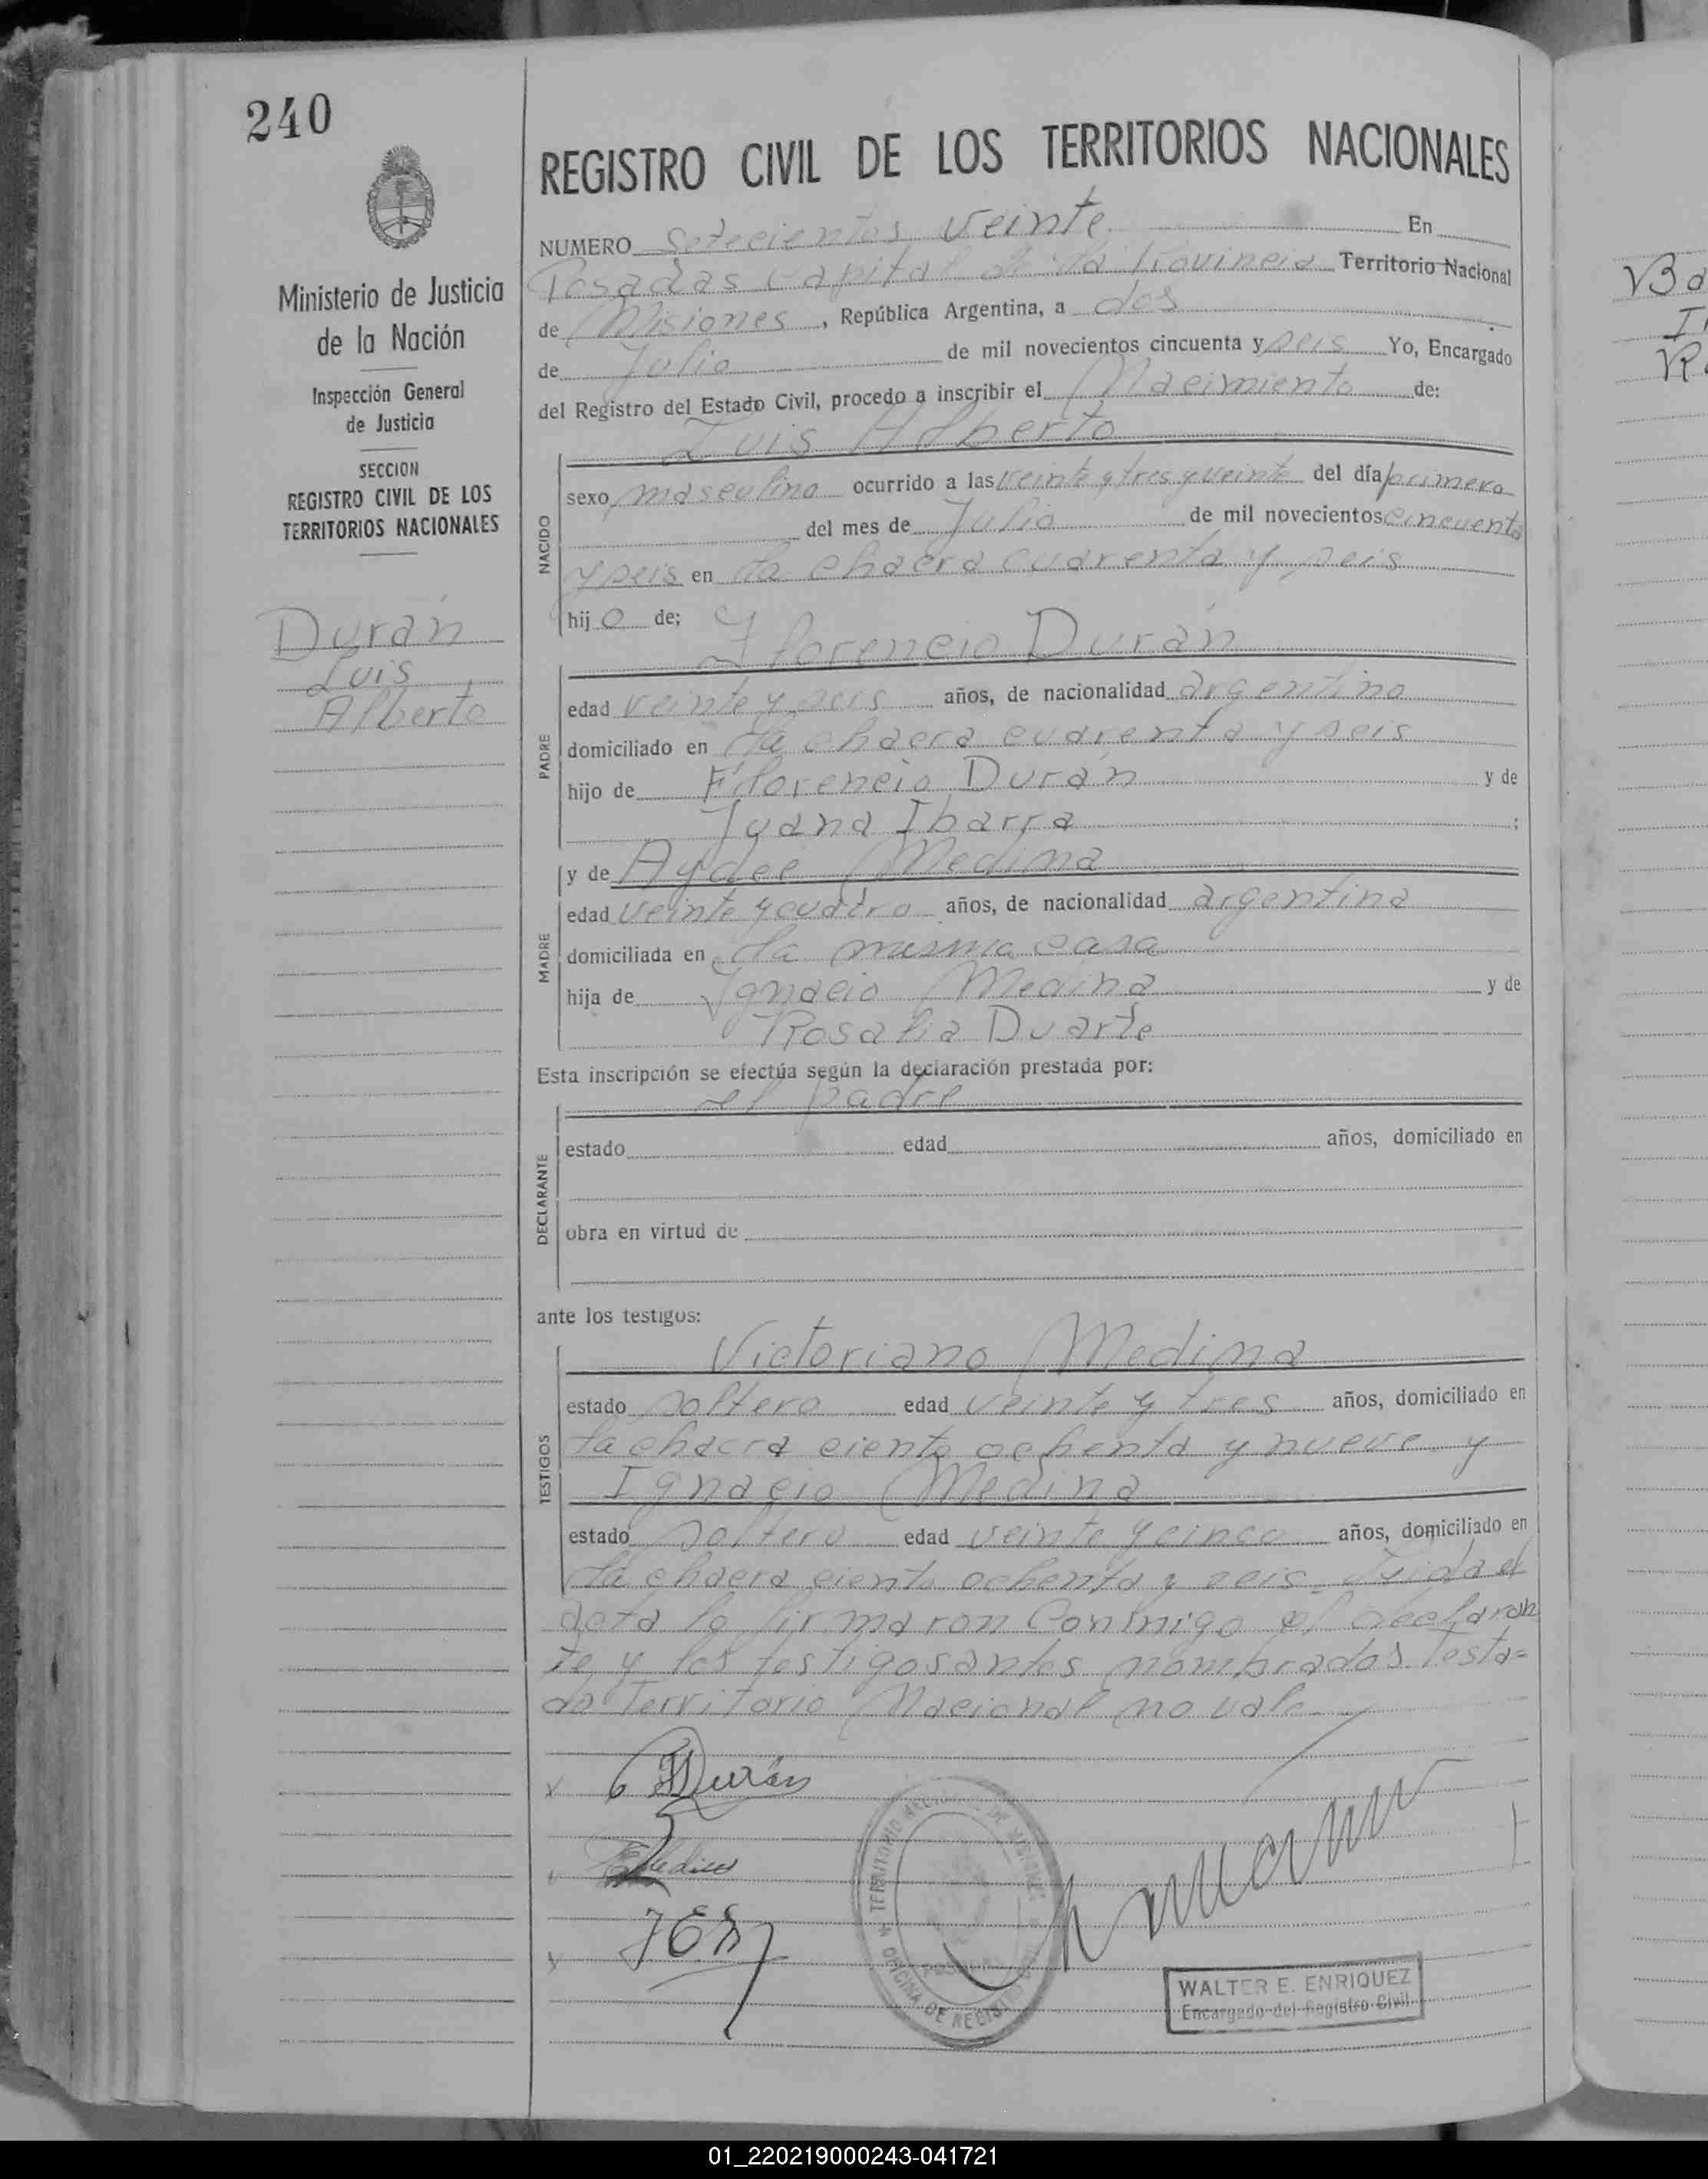 240
Ministerio de Justicia
de la Nación
Inspección General
de Justicia
SECCION
REGISTRO CIVIL DE LOS
TERRITORIOS NACIONALES
Durán
Luis
Alberto
REGISTRO CIVIL DE LOS TERRITORIOS NACIONALES
NUMERO Setecientos veinte En
Posadas capital de la Provincia Territorio Nacional
de Misiones, República Argentina, a dos
de Julio de mil novecientos cincuenta y seis Yo, Encargado
del Registro del Estado Civil, procedo a inscribir el Nacimiento de:
Luis Alberto
NACIDO
sexo masculino ocurrido a las veinte y tres y veinte del día primero
del mes de Julio de mil novecientos cincuenta
y seis en la chacra cuarenta y seis
hijo de;
Florencio Durán
PADRE
edad veinte y seis años, de nacionalidad argentino
domiciliado en la chacra cuarenta y seis
hijo de Florencio Durán y de
Juana Ibarra ;
MADRE
y de Aydee Medina
edad veinte y cuatro años, de nacionalidad argentina
domiciliada en la misma casa
hija de Ignacio Medina y de
Rosalia Duarte
Esta inscripción se efectúa según la declaración prestada por:
DECLARANTE
el padre
estado edad años, domiciliado en
obra en virtud de
ante los testigos:
TESTIGOS
Victoriano Medina
estado soltero edad veinte y tres años, domiciliado en
la chacra ciento ochenta y nueve y
Ignacio Medina
estado soltero edad veinte y cinco años, domiciliado en
la chacra ciento ochenta y seis. Leida el
acta la firmaron conmigo el declaran
te y los testigos antes nombrados Testa=
do Territorio Nacional no vale
Durán
TERRITORIO NACIONAL DE MISIONES
OFICINA DE REGISTRO CIVIL
POSADAS
WALTER E. ENRIQUEZ
Encargado del Registro Civil
01_220219000243-041721